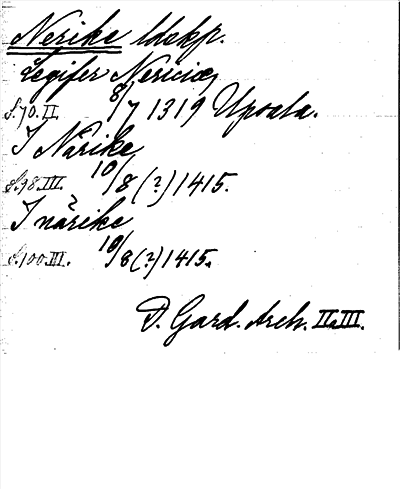 Nerike ldskp.
Legifer Nericiæ
S. 70. II. 8/7 1319 Upsala.
I Närike
S. 98. III. 10/8 (?) 1415.
I närike
S. 100. III. 10/8 (?) 1415.
D. Gard. Arch. II a III.